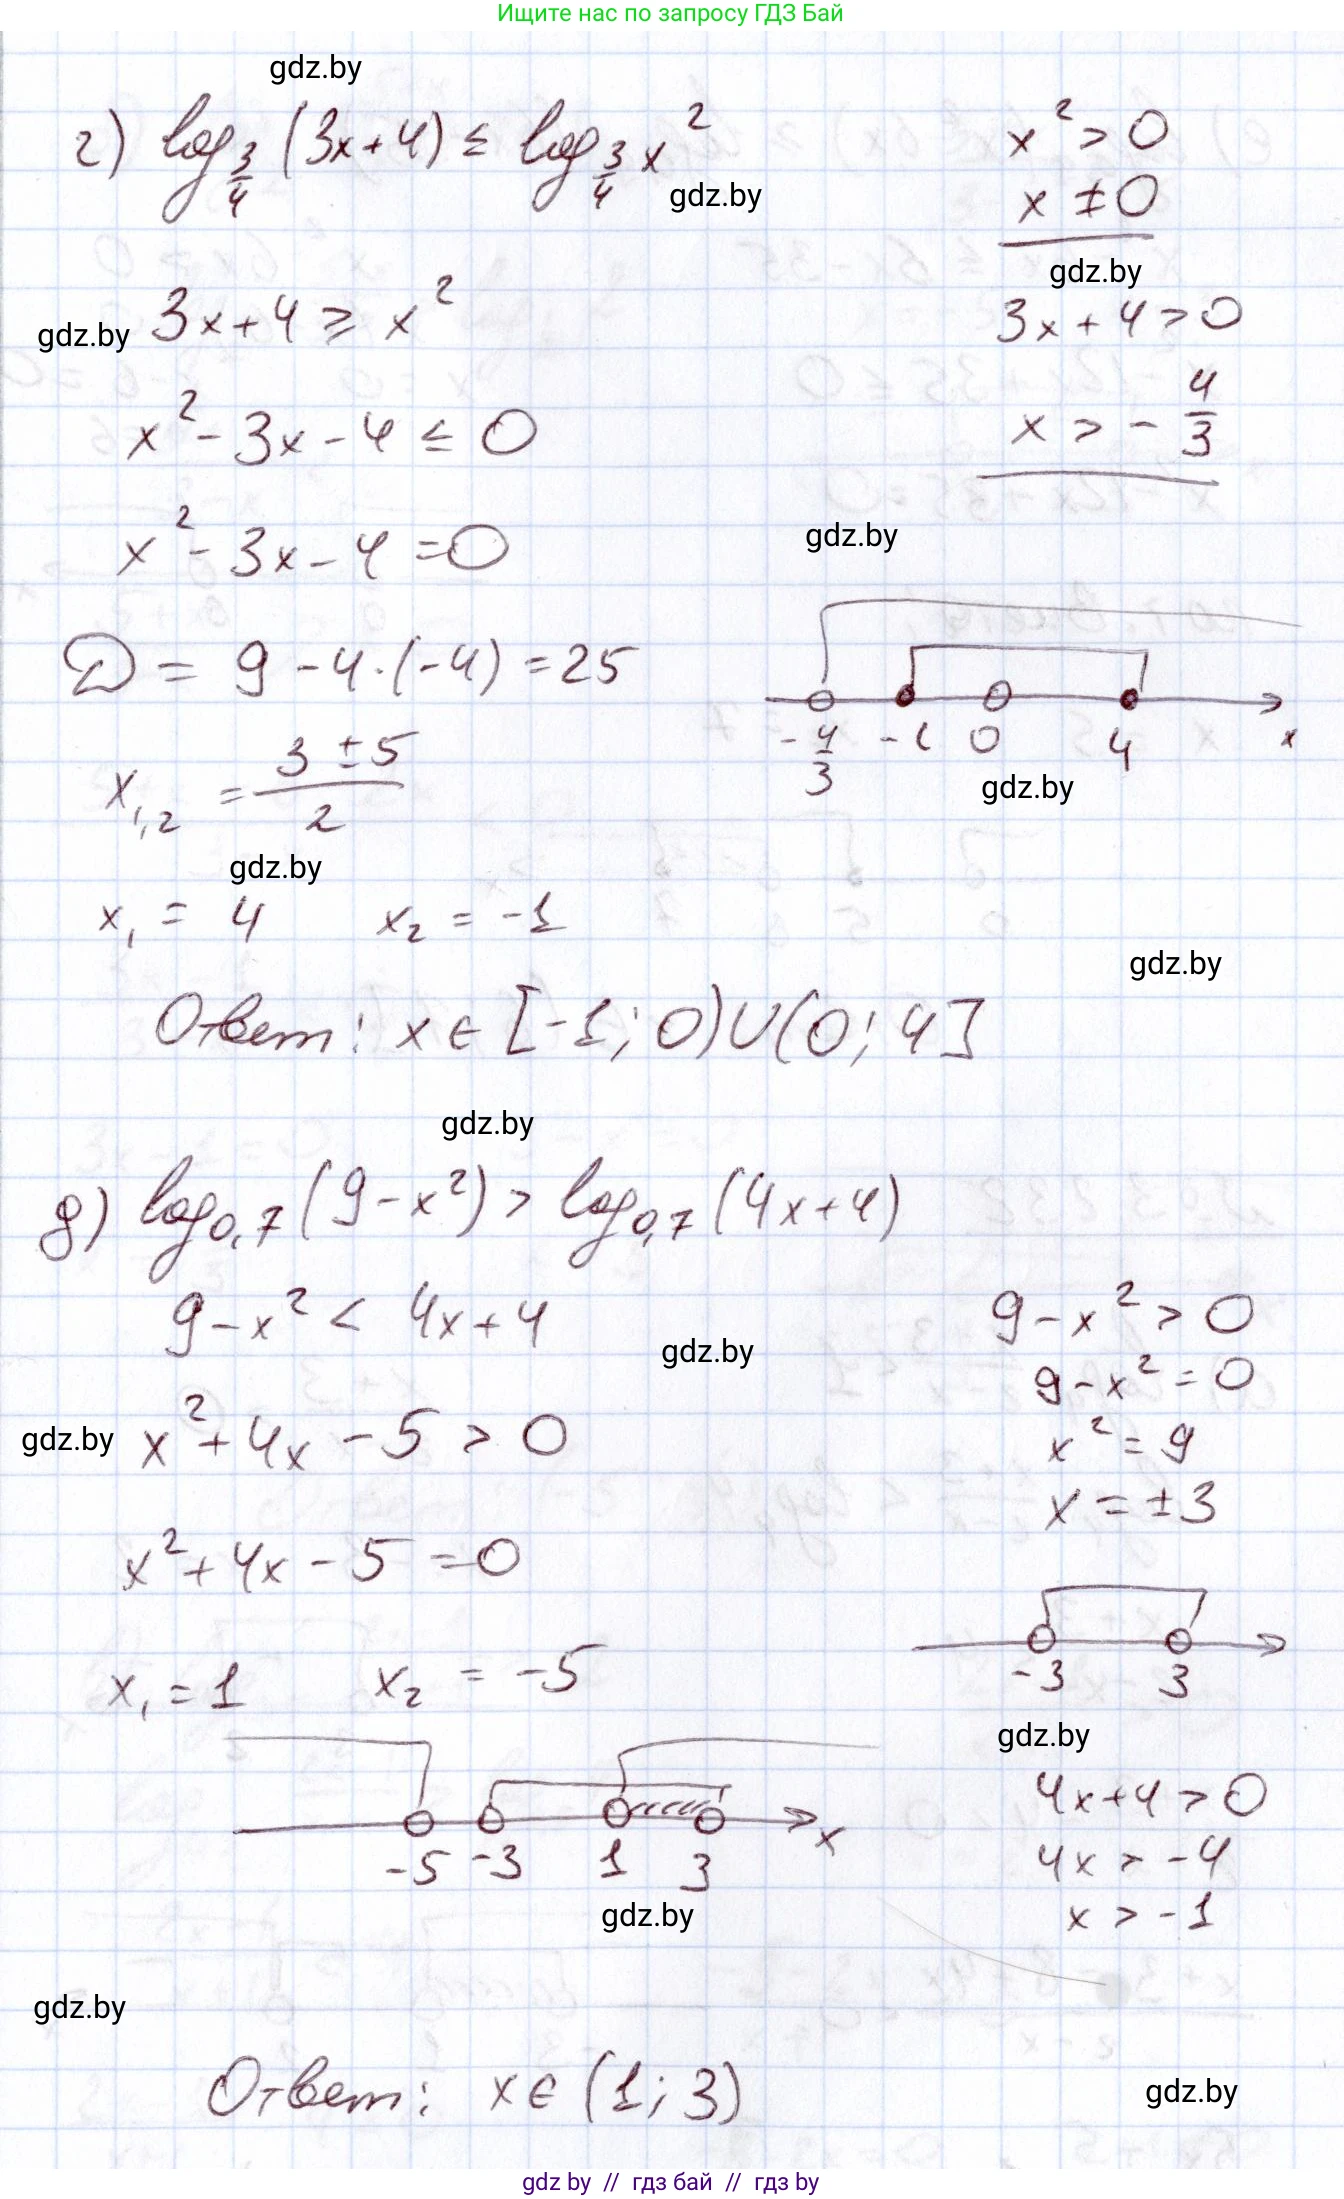 Ищите нас по запросу ГДЗ Бай
gdz.by
г) log_{3/4} (3x+4) ≤ log_{3/4} x²
x² > 0
gdz.by
x ≠ 0
gdz.by
3x+4 ≥ x²
3x+4 > 0
gdz.by
x² - 3x - 4 ≤ 0
x > - 4/3
x² - 3x - 4 = 0
gdz.by
D = 9 - 4·(-4) = 25
-4/3 -1 0 4 x
x_{1,2} = (3 ± 5)/2
gdz.by
gdz.by
x₁ = 4 x₂ = -1
gdz.by
Ответ: x ∈ [-1; 0) ∪ (0; 4]
gdz.by
д) log_{0,7} (9-x²) > log_{0,7} (4x+4)
9-x² < 4x+4
9-x² > 0
gdz.by
9-x² = 0
gdz.by
x² + 4x - 5 > 0
x² = 9
x = ±3
x² + 4x - 5 = 0
-3 3
x₁ = 1 x₂ = -5
gdz.by
4x+4 > 0
-5 -3 1 3 x
4x > -4
gdz.by
x > -1
gdz.by
Ответ: x ∈ (1; 3)
gdz.by
gdz by // гдз бай // гдз by